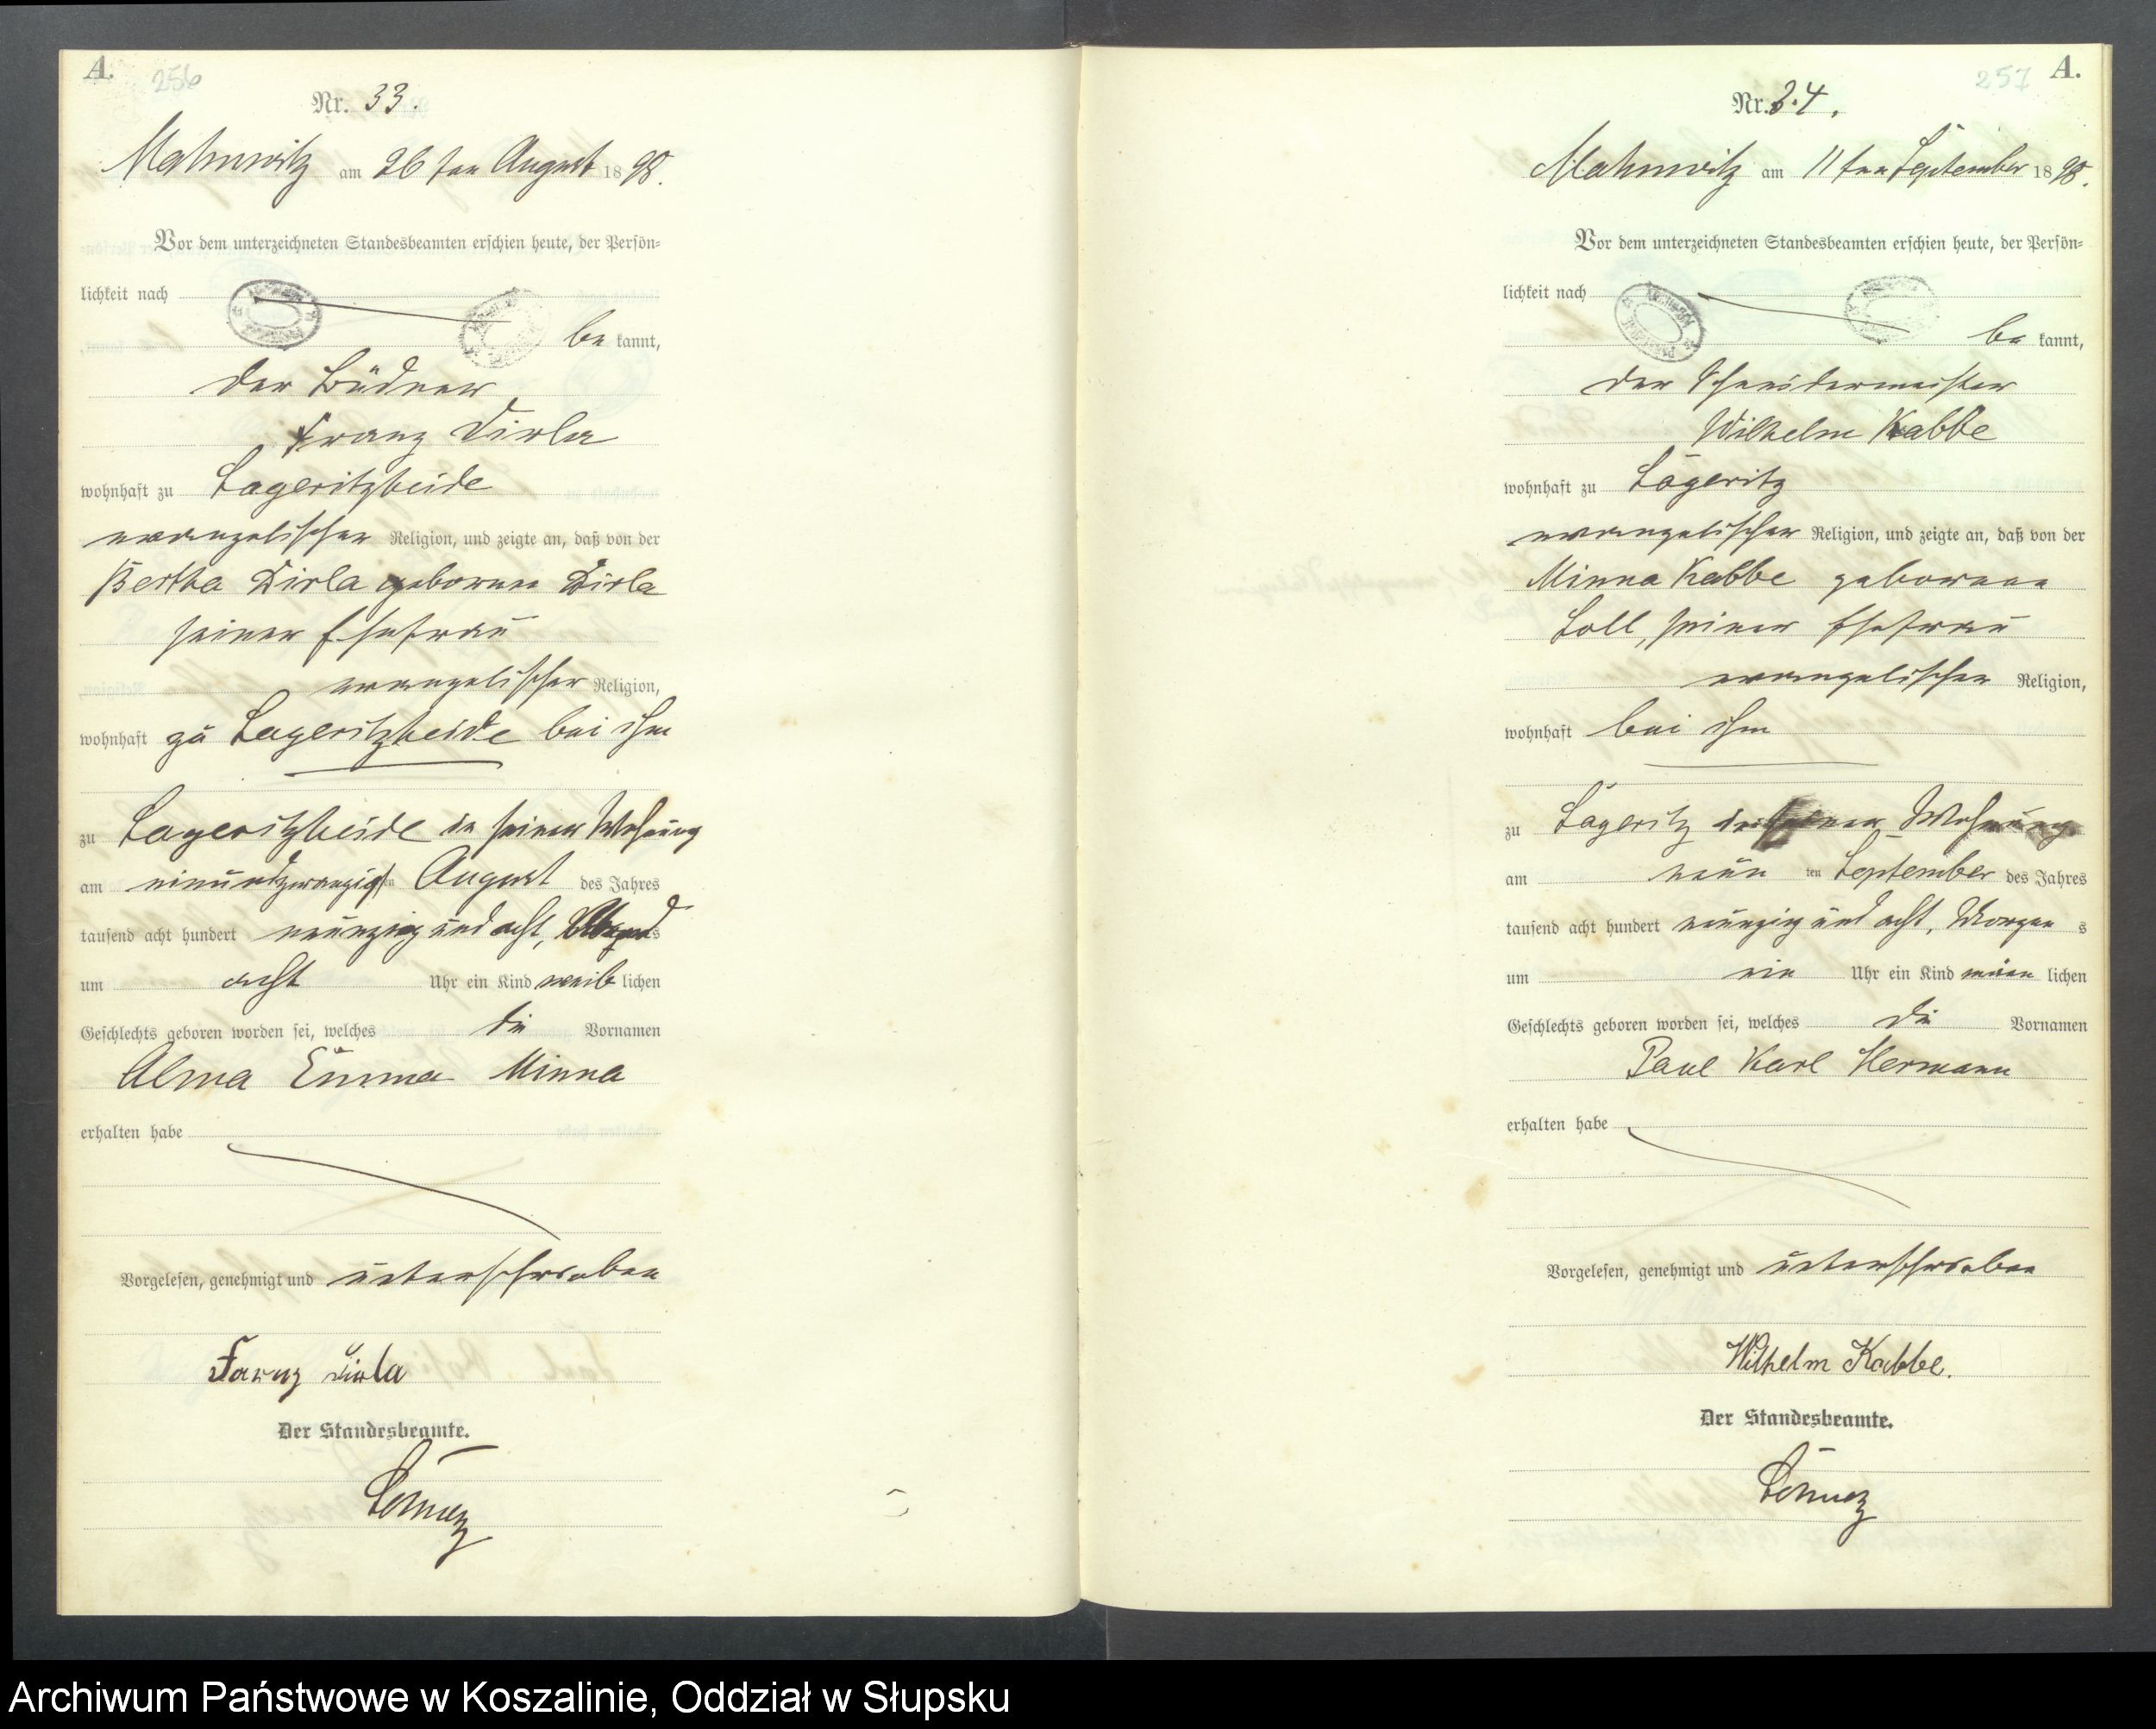 A.
256
Nr. 33.
Mahnwitz am 26 ten August 1898.
Vor dem unterzeichneten Standesbeamten erschien heute, der Persön-
lichkeit nach
be kannt,
der Büdner
Franz Dirla
wohnhaft zu Lageritzheide
evangelischer Religion, und zeigte an, daß von der
Bertha Dirla geborene Dirla
seiner Ehefrau
evangelischer Religion,
wohnhaft zu Lageritzheide bei ihm
zu Lageritzheide in seiner Wohnung
am einundzwanzigsten August des Jahres
tausend acht hundert neunzig und acht, Abends
um acht Uhr ein Kind weib lichen
Geschlechts geboren worden sei, welches die Vornamen
Alma Emma Minna
erhalten habe
Vorgelesen, genehmigt und unterschrieben
Franz Dirla
Der Standesbeamte.
A.
257
Nr. 34.
Mahnwitz am 11 ten September 1898.
Vor dem unterzeichneten Standesbeamten erschien heute, der Persön-
lichkeit nach
be kannt,
der Schneidermeister
Wilhelm Kabbe
wohnhaft zu Lageritz
evangelischer Religion, und zeigte an, daß von der
Minna Kabbe geborene
Loll, seiner Ehefrau
evangelischer Religion,
wohnhaft bei ihm
zu Lageritz in seiner Wohnung
am neun ten September des Jahres
tausend acht hundert neunzig und acht, Morgen s
um ein Uhr ein Kind männ lichen
Geschlechts geboren worden sei, welches die Vornamen
Paul Karl Hermann
erhalten habe
Vorgelesen, genehmigt und unterschrieben
Wilhelm Kabbe.
Der Standesbeamte.
Archiwum Państwowe w Koszalinie, Oddział w Słupsku